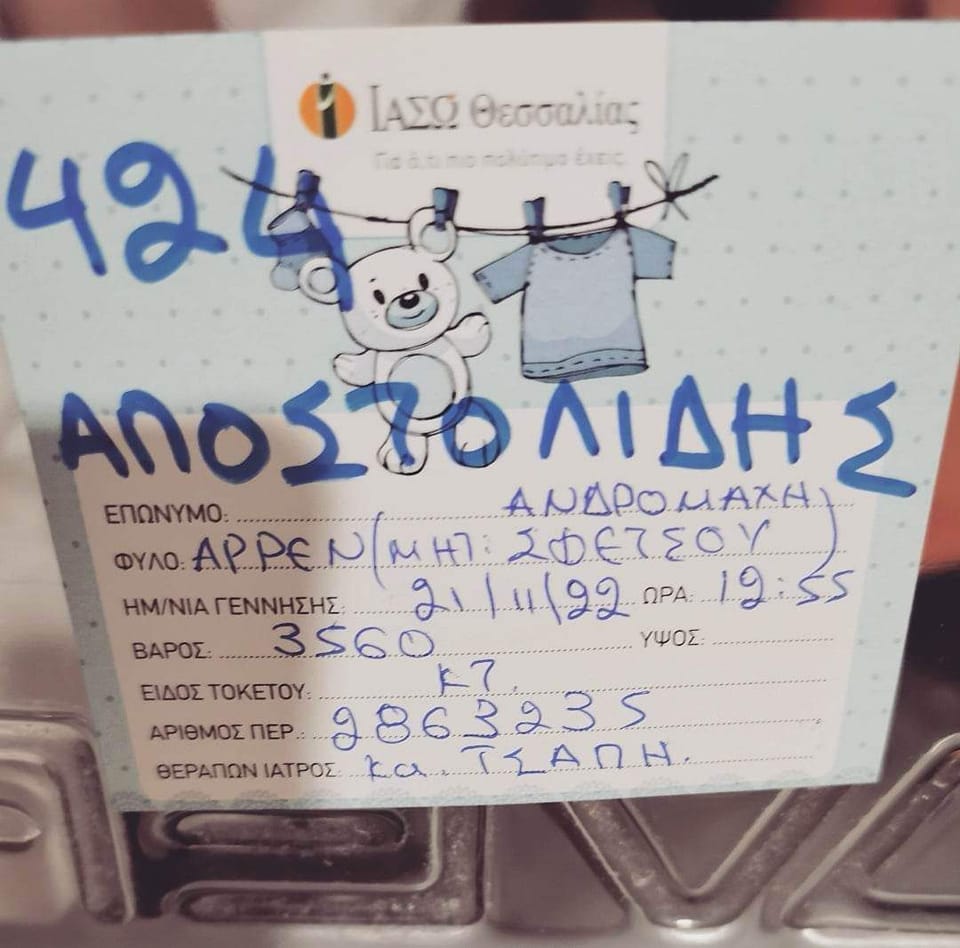 ΙΑΣΩ Θεσσαλίας
Για ό,τι πιο πολύτιμο έχεις
424
ΑΠΟΣΤΟΛΙΔΗΣ
ΕΠΩΝΥΜΟ: ΑΝΔΡΟΜΑΧΗ)
ΦΥΛΟ: ΑΡΡΕΝ (ΜΗΤ: ΣΦΕΤΣΟΥ
ΗΜ/ΝΙΑ ΓΕΝΝΗΣΗΣ: 21/11/22 ΩΡΑ: 12:55
ΒΑΡΟΣ: 3560 ΥΨΟΣ:
ΕΙΔΟΣ ΤΟΚΕΤΟΥ: ΚΤ
ΑΡΙΘΜΟΣ ΠΕΡ.: 2863235
ΘΕΡΑΠΩΝ ΙΑΤΡΟΣ: κα. ΤΣΑΠΗ.